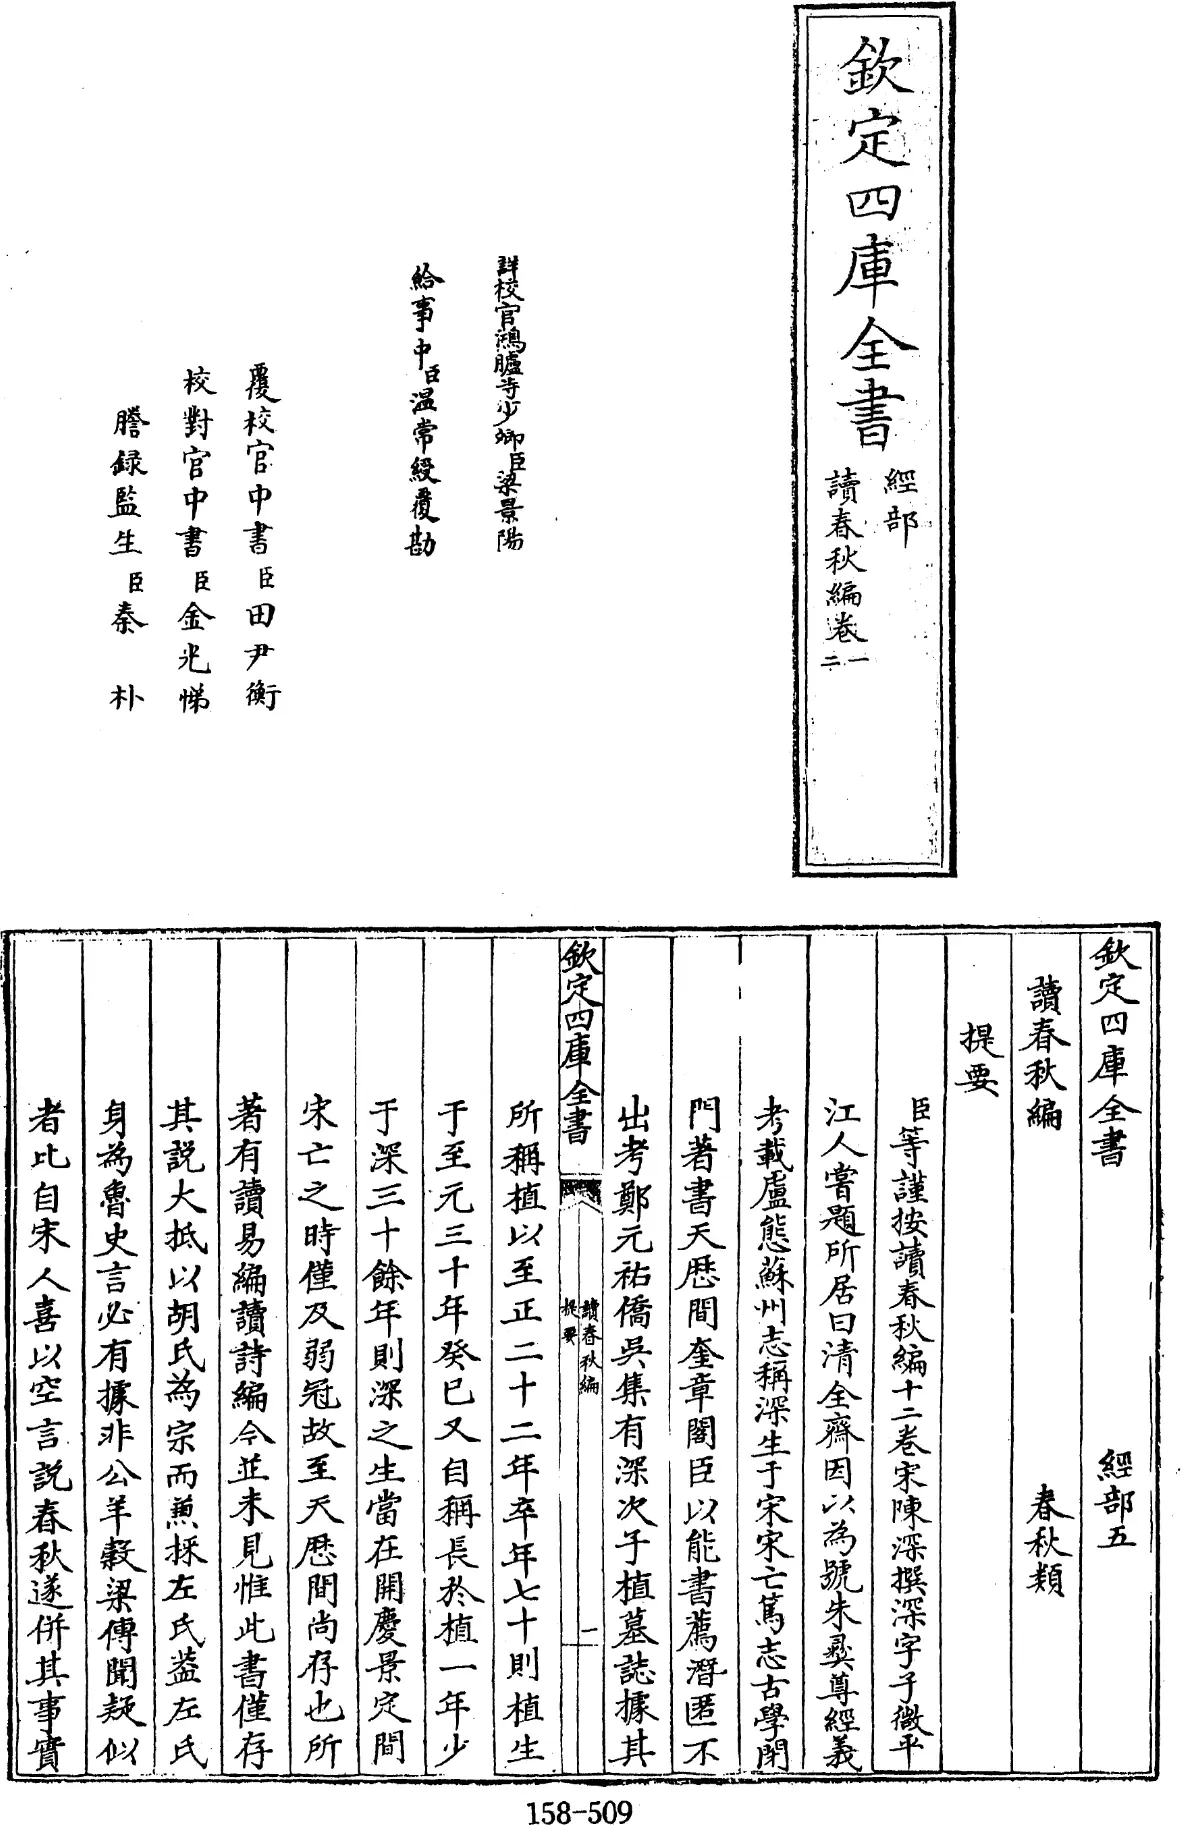 欽定四庫全書
經部
讀春秋編卷一二
詳校官鴻臚寺少卿臣梁景陽
給事中臣温常綬覆勘
覆校官中書臣田尹衡
校對官中書臣金光悌
謄錄監生臣秦朴
欽定四庫全書 經部五
讀春秋編 春秋類
提要
臣等謹按讀春秋編十二卷宋陳深撰深字子微平
江人嘗題所居曰清全齋因以為號朱彝尊經義
考載盧熊蘇州志稱深生于宋宋亡篤志古學閉
門著書天厯間奎章閣臣以能書薦潛匿不
出考鄭元祐僑吳集有深次子植墓誌據其
欽定四庫全書
讀春秋編
提要
一
所稱植以至正二十二年卒年七十則植生
于至元三十年癸巳又自稱長於植一年少
于深三十餘年則深之生當在開慶景定間
宋亡之時僅及弱冠故至天厯間尚存也所
著有讀易編讀詩編今並未見惟此書僅存
其説大抵以胡氏為宗而兼採左氏葢左氏
身為魯史言必有據非公羊穀梁傳聞疑似
者比自宋人喜以空言説春秋遂併其事實
158-509